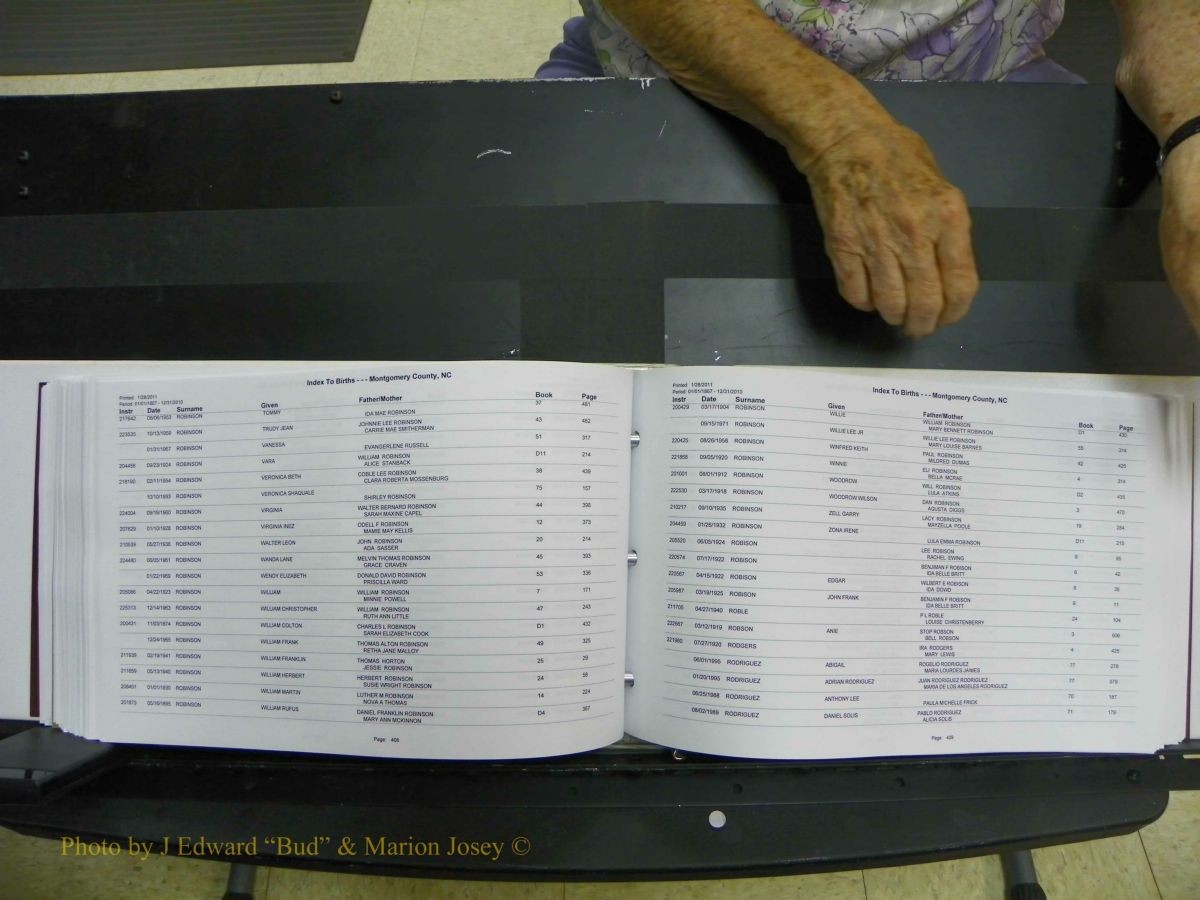 Index To Births - - - Montgomery County, NC
Printed: 1/28/2011
Period: 01/01/1867 - 12/31/2010
Instr Date Surname Given Father/Mother Book Page
217642 06/06/1953 ROBINSON TOMMY 37 461
IDA MAE ROBINSON
223535 10/13/1959 ROBINSON TRUDY JEAN JOHNNIE LEE ROBINSON 43 462
CARRIE MAE SMITHERMAN
01/31/1967 ROBINSON VANESSA 51 317
EVANGERLENE RUSSELL
204456 09/23/1924 ROBINSON VARA WILLIAM ROBINSON D11 214
ALICE STANBACK
218190 02/11/1954 ROBINSON VERONICA BETH COBLE LEE ROBINSON 38 439
CLARA ROBERTA MOSSENBURG
10/10/1993 ROBINSON VERONICA SHAQUALE 75 157
SHIRLEY ROBINSON
224004 09/19/1960 ROBINSON VIRGINIA WALTER BERNARD ROBINSON 44 398
SARAH MAXINE CAPEL
207629 01/10/1928 ROBINSON VIRGINIA INEZ ODELL F ROBINSON 12 373
MAMIE MAY KELLIS
210539 05/27/1936 ROBINSON WALTER LEON JOHN ROBINSON 20 214
ADA SASSER
224480 06/05/1961 ROBINSON WANDA LANE MELVIN THOMAS ROBINSON 45 393
GRACE CRAVEN
01/22/1969 ROBINSON WENDY ELIZABETH DONALD DAVID ROBINSON 53 336
PRISCILLA WARD
205086 04/22/1923 ROBINSON WILLIAM WILLIAM ROBINSON 7 171
MINNIE POWELL
225313 12/14/1963 ROBINSON WILLIAM CHRISTOPHER WILLIAM ROBINSON 47 243
RUTH ANN LITTLE
200431 11/03/1874 ROBINSON WILLIAM COLTON CHARLES L ROBINSON D1 432
SARAH ELIZABETH COOK
12/24/1965 ROBINSON WILLIAM FRANK THOMAS ALTON ROBINSON 49 325
RETHA JANE MALLOY
211939 02/19/1941 ROBINSON WILLIAM FRANKLIN THOMAS HORTON 25 29
JESSIE ROBINSON
211659 05/13/1940 ROBINSON WILLIAM HERBERT HERBERT ROBINSON 24 58
SUSIE WRIGHT ROBINSON
208451 01/01/1930 ROBINSON WILLIAM MARTIN LUTHER M ROBINSON 14 224
NOVA A THOMAS
201873 05/16/1895 ROBINSON WILLIAM RUFUS DANIEL FRANKLIN ROBINSON D4 367
MARY ANN MCKINNON
Page: 408
Printed: 1/28/2011
Period: 01/01/1867 - 12/31/2010
Index To Births - - - Montgomery County, NC
Instr Date Surname Given Father/Mother Book Page
200429 03/17/1904 ROBINSON WILLIE WILLIAM ROBINSON D1 430
MARY BENNETT ROBINSON
09/15/1971 ROBINSON WILLIE LEE JR WILLIE LEE ROBINSON 55 214
MARY LOUISE BARNES
220425 08/26/1958 ROBINSON WINFRED KEITH PAUL ROBINSON 42 425
MILDRED DUMAS
221868 09/05/1920 ROBINSON WINNIE ELI ROBINSON 4 214
BELLA MCRAE
201001 08/01/1912 ROBINSON WOODROW WILL ROBINSON D2 435
LULA ATKINS
222530 03/17/1918 ROBINSON WOODROW WILSON DAN ROBINSON 3 470
AGUSTA DIGGS
210217 09/10/1935 ROBINSON ZELL GARRY LACY ROBINSON 19 284
MAYZELLA POOLE
204459 01/25/1932 ROBINSON ZONA IRENE D11 215
LULA EMMA ROBINSON
205520 06/05/1924 ROBISON LEE ROBISON 8 95
RACHEL EWING
220574 07/17/1922 ROBISON BENJIMAN F ROBISON 6 42
IDA BELLE BRITT
220567 04/15/1922 ROBISON EDGAR WILBERT E ROBISON 6 35
IDA DOWD
205987 03/19/1925 ROBISON JOHN FRANK BENJAMIN F ROBISON 9 11
IDA BELLE BRITT
211705 04/27/1940 ROBLE P L ROBLE 24 104
LOUISE CHRISTENBERRY
222667 03/12/1919 ROBSON ANIE STOP ROBSON 3 606
BELL ROBSON
221980 07/27/1920 RODGERS IRA RODGERS 4 425
MARY LEWIS
06/01/1995 RODRIGUEZ ABIGAIL ROGELIO RODRIGUEZ 77 278
MARIA LOURDES JAIMES
01/20/1995 RODRIGUEZ ADRIAN RODRIGUEZ JUAN RODRIGUEZ RODRIGUEZ 77 079
MARIA DE LOS ANGELES RODRIGUEZ
06/25/1988 RODRIGUEZ ANTHONY LEE 70 187
PAULA MICHELLE FRICK
08/02/1989 RODRIGUEZ DANIEL SOLIS PABLO RODRIGUEZ 71 179
ALICIA SOLIS
Page: 409
Photo by J Edward “Bud” & Marion Josey ©